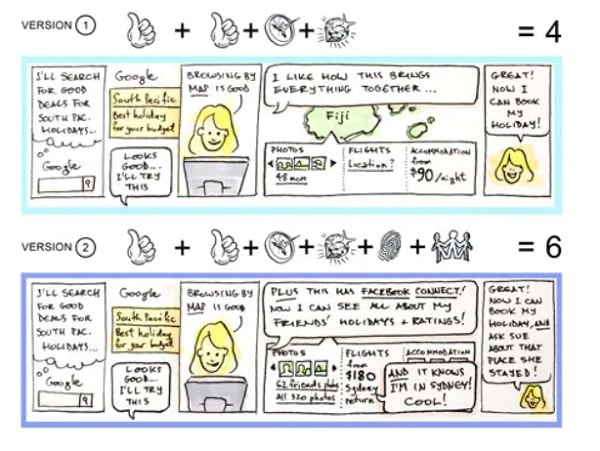 VERSION 1
+ + + = 4
I'LL SEARCH
FOR GOOD
DEALS FOR
SOUTH PAC.
HOLIDAYS...
Google
Google
South Pacific
Best holiday
for your budget
LOOKS
GOOD...
I'LL TRY
THIS
BROWSING BY
MAP IS GOOD
I LIKE HOW THIS BRINGS
EVERYTHING TOGETHER...
Fiji
PHOTOS
48 more
FLIGHTS
Location?
ACCOMMODATION
from
$90/night
GREAT!
NOW I
CAN BOOK
MY
HOLIDAY!
VERSION 2
+ + + + + = 6
I'LL SEARCH
FOR GOOD
DEALS FOR
SOUTH PAC.
HOLIDAYS...
Google
Google
South Pacific
Best holiday
for your budget
LOOKS
GOOD...
I'LL TRY
THIS
BROWSING BY
MAP IS GOOD
PLUS THIS HAS FACEBOOK CONNECT!
NOW I CAN SEE ALL ABOUT MY
FRIENDS' HOLIDAYS + RATINGS!
PHOTOS
62 friends photos
All 320 photos
FLIGHTS
from
$180
Sydney
return
ACCOMMODATION
AND IT KNOWS
I'M IN SYDNEY!
COOL!
GREAT!
NOW I CAN
BOOK MY
HOLIDAY, AND
ASK SUE
ABOUT THAT
PLACE SHE
STAYED!